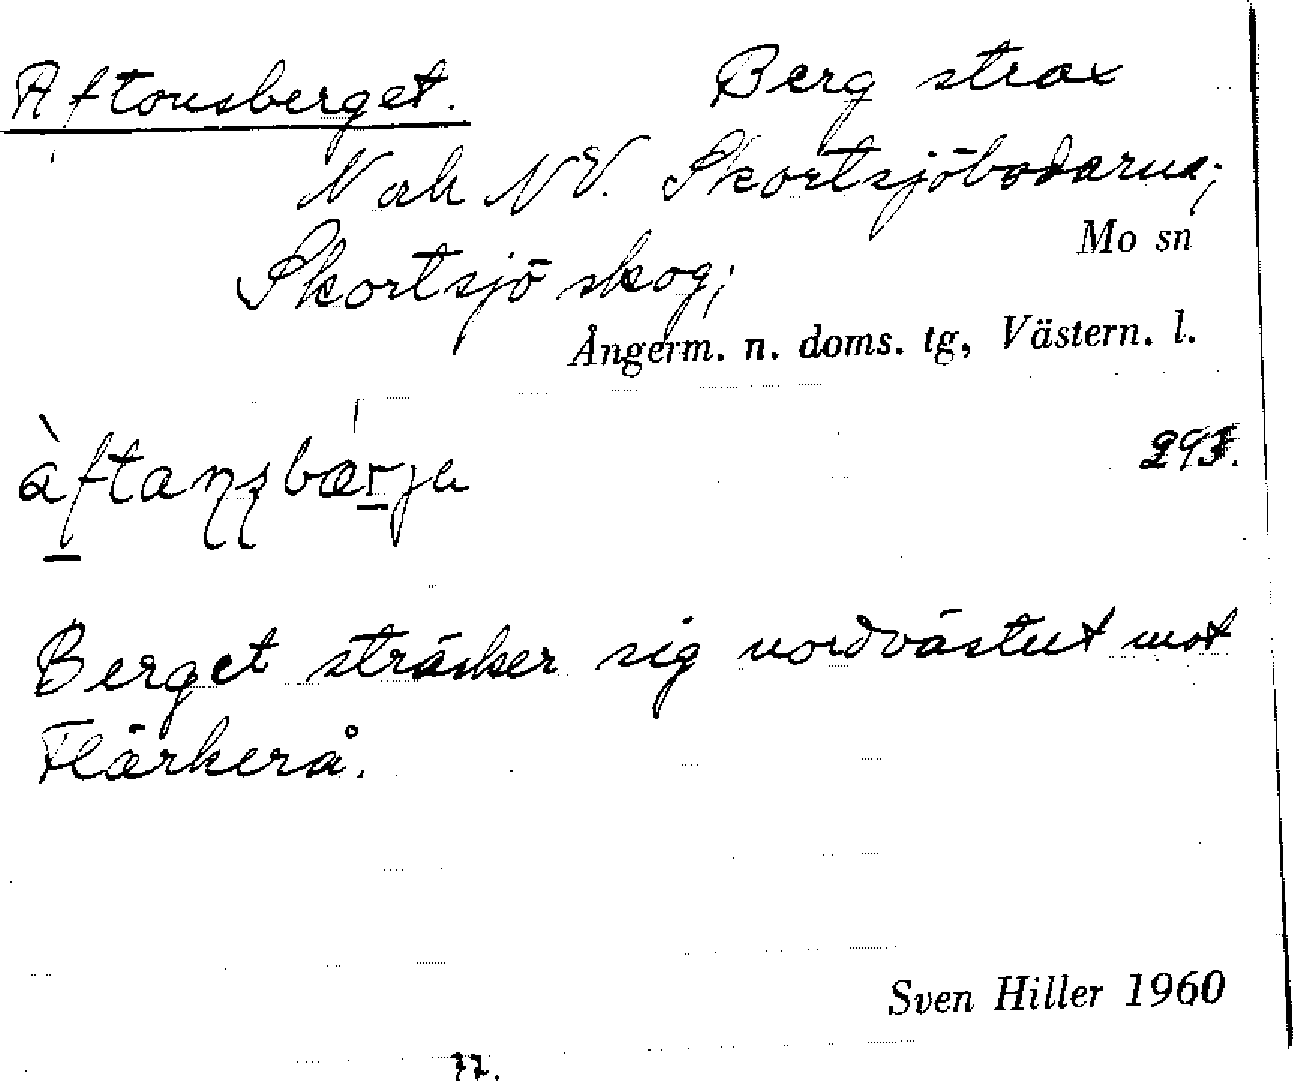 Aftonsberget. Berg strax
N och NV. Skortsjöbodarna;
Mo sn
Skortsjö skog;
Ångerm. n. doms. tg, Västern. l.
àftaɳʂbærja
Berget sträcker sig nordvästut mot
Flärkerå.
Sven Hiller 1960
77.